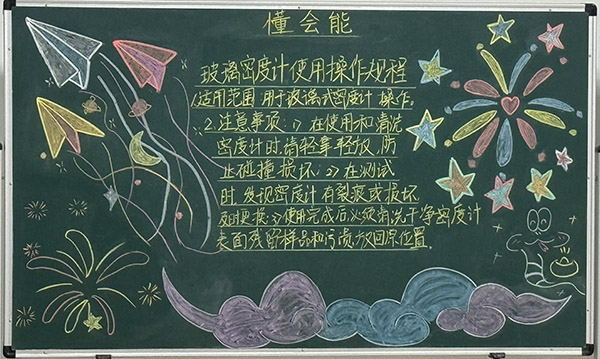 懂会能
玻璃密度计使用操作规程
1.适用范围 用于玻璃式密度计操作。
2.注意事项:1)在使用和清洗
密度计时,请轻拿轻放,防
止碰撞损坏;2)在测试
时,发现密度计有裂痕或损坏
及时更换;3)使用完成后必须清洗干净密度计
表面残留样品和污渍,放回原位置。